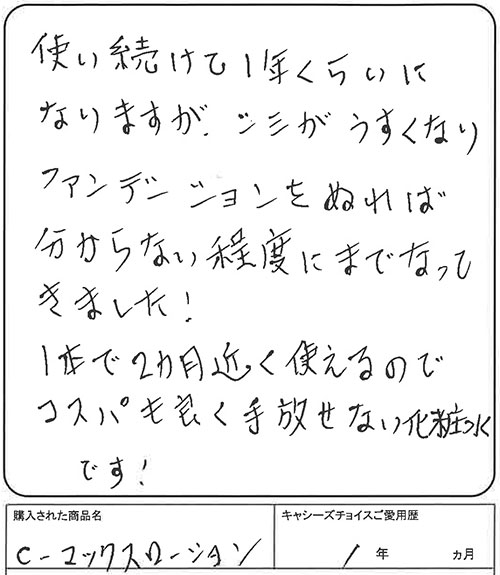 使い続けて1年くらいに
なりますが、シミがうすくなり
ファンデンションをぬれば
分からない程度にまでなって
きました!
1本で2カ月近く使えるので
コスパも良く手放せない化粧水
です!
購入された商品名
キャシーズチョイスご愛用歴
C-マックスローション
1年 カ月